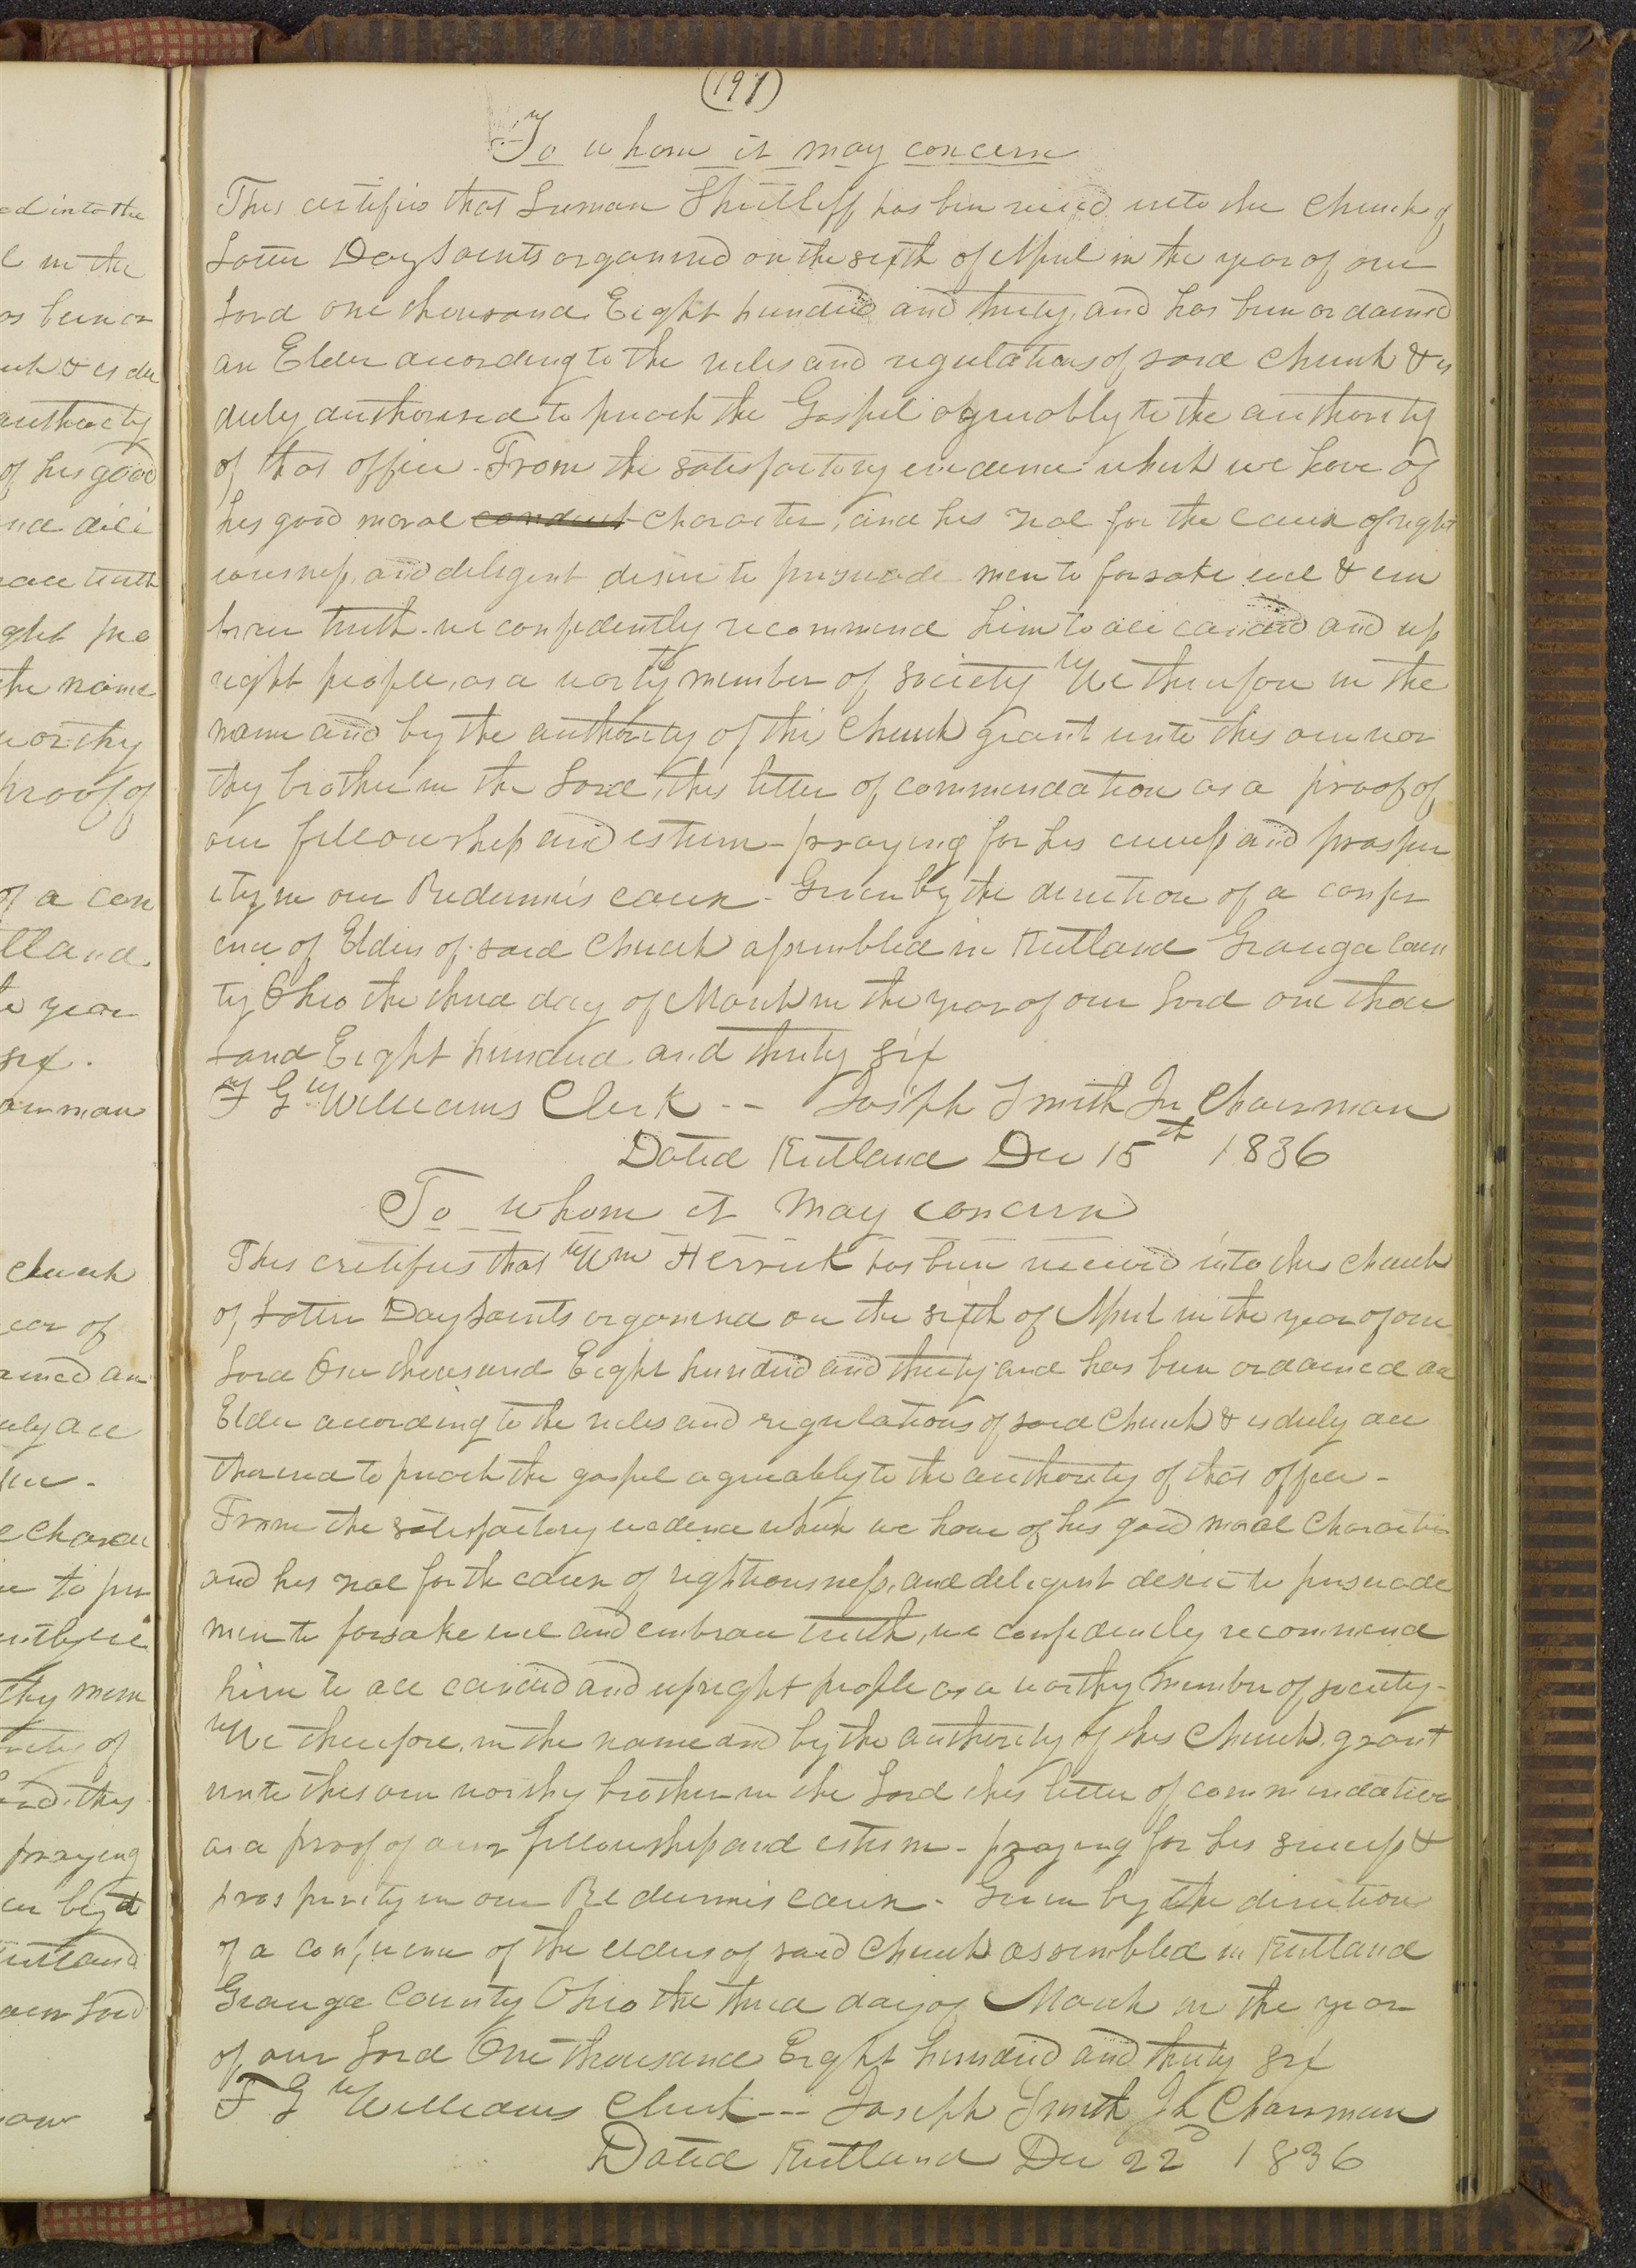 ed into the
l in the
as been or
uch & is du
authority
of his good
and dili
ace truth
ight peo
the name
worthy
proof of
of a con
tland
e year
six.
airman
church
ear of
ained an
uly au
fice.
l charac
re to per
thy mem
rity of
ord, this
praying
en by t
irtland
our Lord
(191)
To whom it may concern
This certifies that Luman Shurtleff, has been received into the church of
Latter Day Saints organized on the sixth of April in the year of our
Lord one thousand Eight hundred and thirty, and has been ordained
an Elder according to the rules and regulations of said church & is
duly authorised to preach the Gospel agreeably to the authority
of that office - From the satisfactory evidence which we have of
his good moral conduct character, and his zeal for the cause of right
eousness, and deligent desire to persuade men to forsake evil & em
brace truth. we confidently recommend him to all candid and up
right people, as a worty member of society We therefore in the
name and by the authority of this church grant unto this our wor
thy brother in the Lord, this letter of commendation as a proof of
our fellowship and esteem - praying for his success and prosper
ity in our Redeemer's cause - Given by the direction of a confer
ence of Elders of said church assembled in Kirtland Geauga Coun
ty Ohio the third day of March in the year of our Lord one thou
sand Eight hundred and thirty six
F G Williams Clerk -- Joseph Smith Jr Chairman
Dated Kirtland Dec 15th 1836
To whom it may concern
This certifies that Wm Herrick has been received into the church
of Latter Day Saints organized on the sixth of April in the year of our
Lord One thousand Eight hundred and thirty and has been ordained an
Elder according to the rules and regulations of said church & is duly au
thorized to preach the gospel agreeably to the authority of that office -
From the satisfactory evidence which we have of his good moral character
and his zeal for the cause of rightiousness, and deligent desire to persuade
men to forsake evil and embrace truth, we confidently recommend
him to all candid and upright people as a worthy member of society -
We therefore, in the name and by the authority of this church, grant
unto this our worthy brother in the Lord this letter of commendation
as a proof of our fellowship and esteem - praying for his success &
prosperity in our Redeemers cause - Given by the direction
of a conference of the elders of said church assembled in Kirtland
Geauga County Ohio the third day of March in the year
of our Lord One thousand Eight hundred and thirty six
F G Williams Clerk --- Joseph Smith Jr Chairman
Dated Kirtland Dec 22d 1836